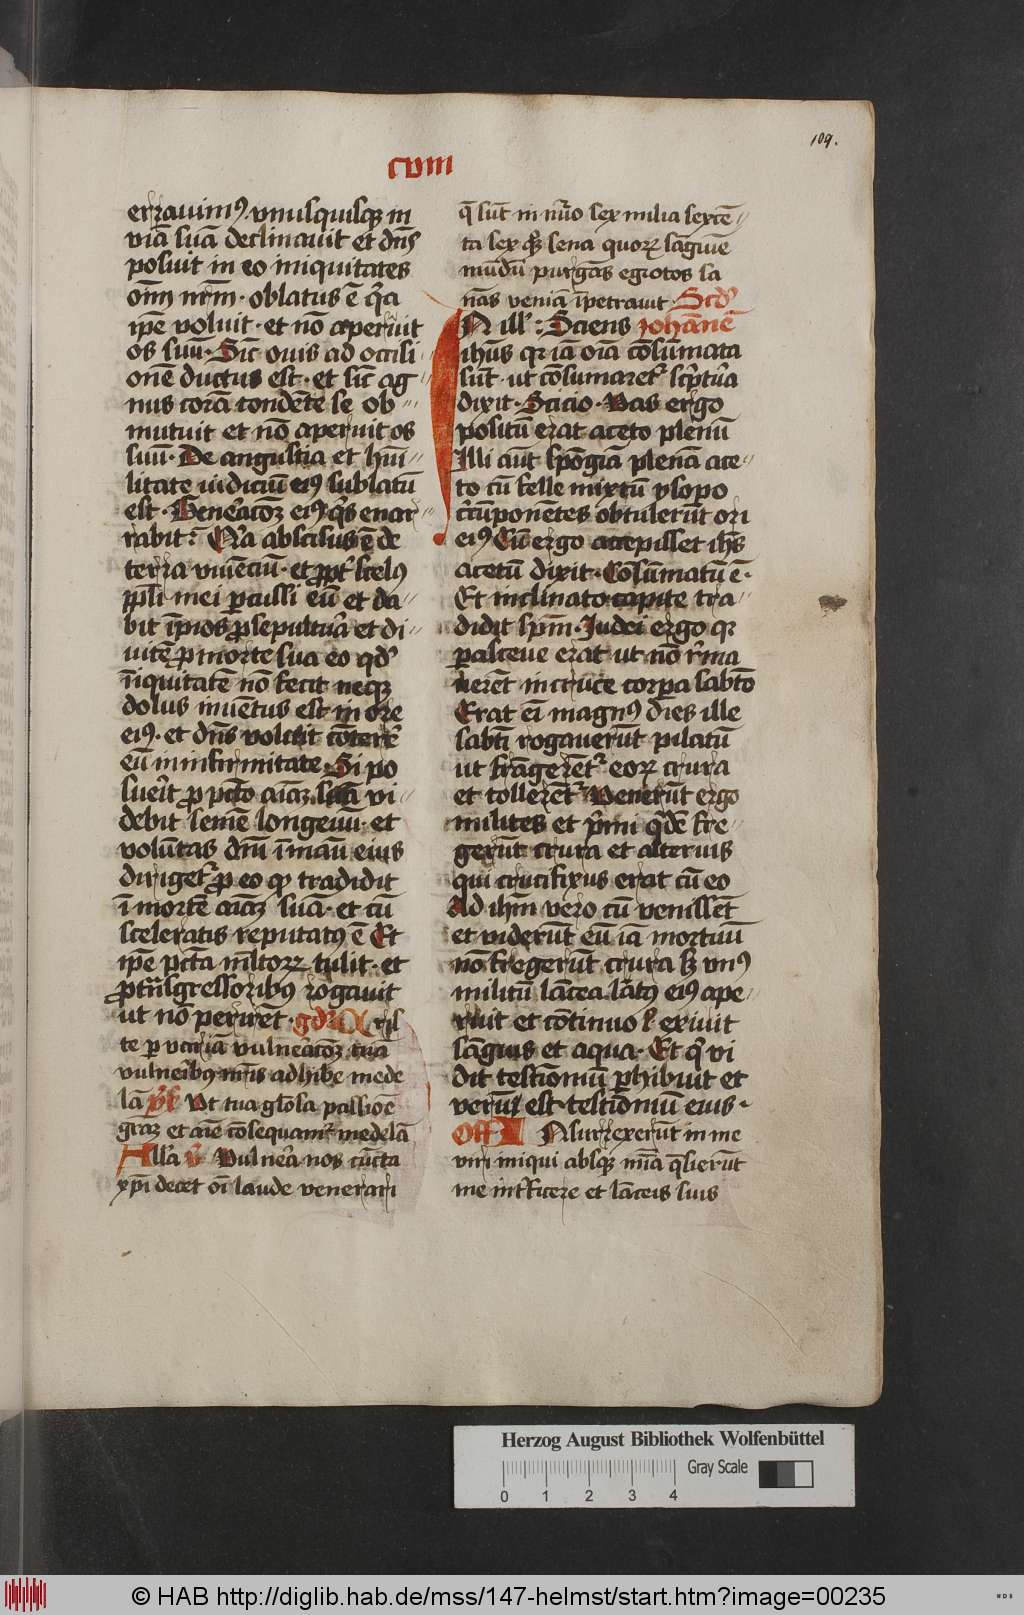 109.
cviii
errauimꝰ vnusquisqꝫ in
viā suā declinauit et dn̄s
posuit in eo iniquitates
om̄ nr̄m · oblatus ē q̄a
ip̄e voluit · et nō aperuit
os suū · Sic̄ ouis ad occisi
onē ductus est · et sic̄ ag
nus corā tondēte se ob
mutuit et nō aperuit os
suū · De angustia et hūi
litate iudiciū eiꝰ sublatū
est · Gene̅acōꝫ eiꝰ q̄s enar
rabit : Q̅a abscisus ē de
terra viuēciū · et ꝓpt̄ scelꝰ
pp̄li mei ꝑcussi eū et da
bit īpios ꝓ sepultu̅a et di
uitē ꝓ morte sua eo qd̾
īiquitatē nō fecit neqꝫ
dolus inuētus est in ore
eiꝰ · et dn̄s voluit cōtere̅
eū in infirmitate · Si po
sue̅it ꝓ pcc̄o aīaꝫ suā vi
debit semē longeuū · et
volūtas dn̄i ī manū eius
diriget̉ ꝓ eo ꝙ tradidit
ī mortē aīaꝫ suā · et cū
sceleratis reputatꝰ ē Et
ip̄e pcc̄a ml̄toꝝ tulit · et
ꝓ tn̄sgressoribꝰ rogauit
ut nō perirēt · gdr̄ Xp̄s
te ꝑ vc̄riā vulneracōꝫ tuā
vulne̅ibꝰ nr̄is adhibe mede
lā V̄s Vt tua gl̄osa passiōe
gr̄aꝫ et aīe cōsequam̉ medelā
All̄a v̄ Vulne̅a nos cūcta
xp̄i decet oī laude venerari
q̄ sūt in nūo sex milia sexcē
ta sex q̄ꝫ sena quoꝝ sāguīe
mūdū purgās egrotos sa
nās veniā īpetrauit · Scd̾
IN ill̄ : Sciens Johānē
ihūs qꝛ iā oīa cōsūmata
sūt · ut cōsumaret̉ scptu̅a
dixit · Sicio · Vas ergo
positū erat aceto plenū
Illi aūt spōgiā plenā ace
to cū felle mixtū ysopo
c̄cūponētes obtulerūt ori
eiꝰ Cū ergo accepisset ih̄s
acetū dixit · Cōsūmatū ē ·
Et inclinato capite tra
didit sp̄m · Judei ergo qꝛ
ꝑasceue erat ut nō r̄ma
nerēt in cruce corꝑa sabb̄to
Erat eī magnꝰ dies ille
sabb̄ti rogauerūt pilatū
ut frāgerēt̉ eoꝝ crura
et tollerēt̉ Venerūt ergo
milites et p̄mi q̄dē fre
gerūt crura et alterius
qui crucifixus erat cū eo
Ad ihm̄ vero cū venissēt
et viderūt eū iā mortuū
nō fregerūt crura sꝫ vnꝰ
militū lācea latꝰ eiꝰ ape
ruit et cōtinuo exiuit
sāguis et aqua · Et q̄ vi
dit testioniū ꝑhibuit et
verū est testioniū eius ·
Off̄ INsurrexerūt in me
viri iniqui absqꝫ mīa q̄sierūt
me interficere et lāceis suis
Herzog August Bibliothek Wolfenbüttel
Gray Scale
0 1 2 3 4
© HAB http://diglib.hab.de/mss/147-helmst/start.htm?image=00235